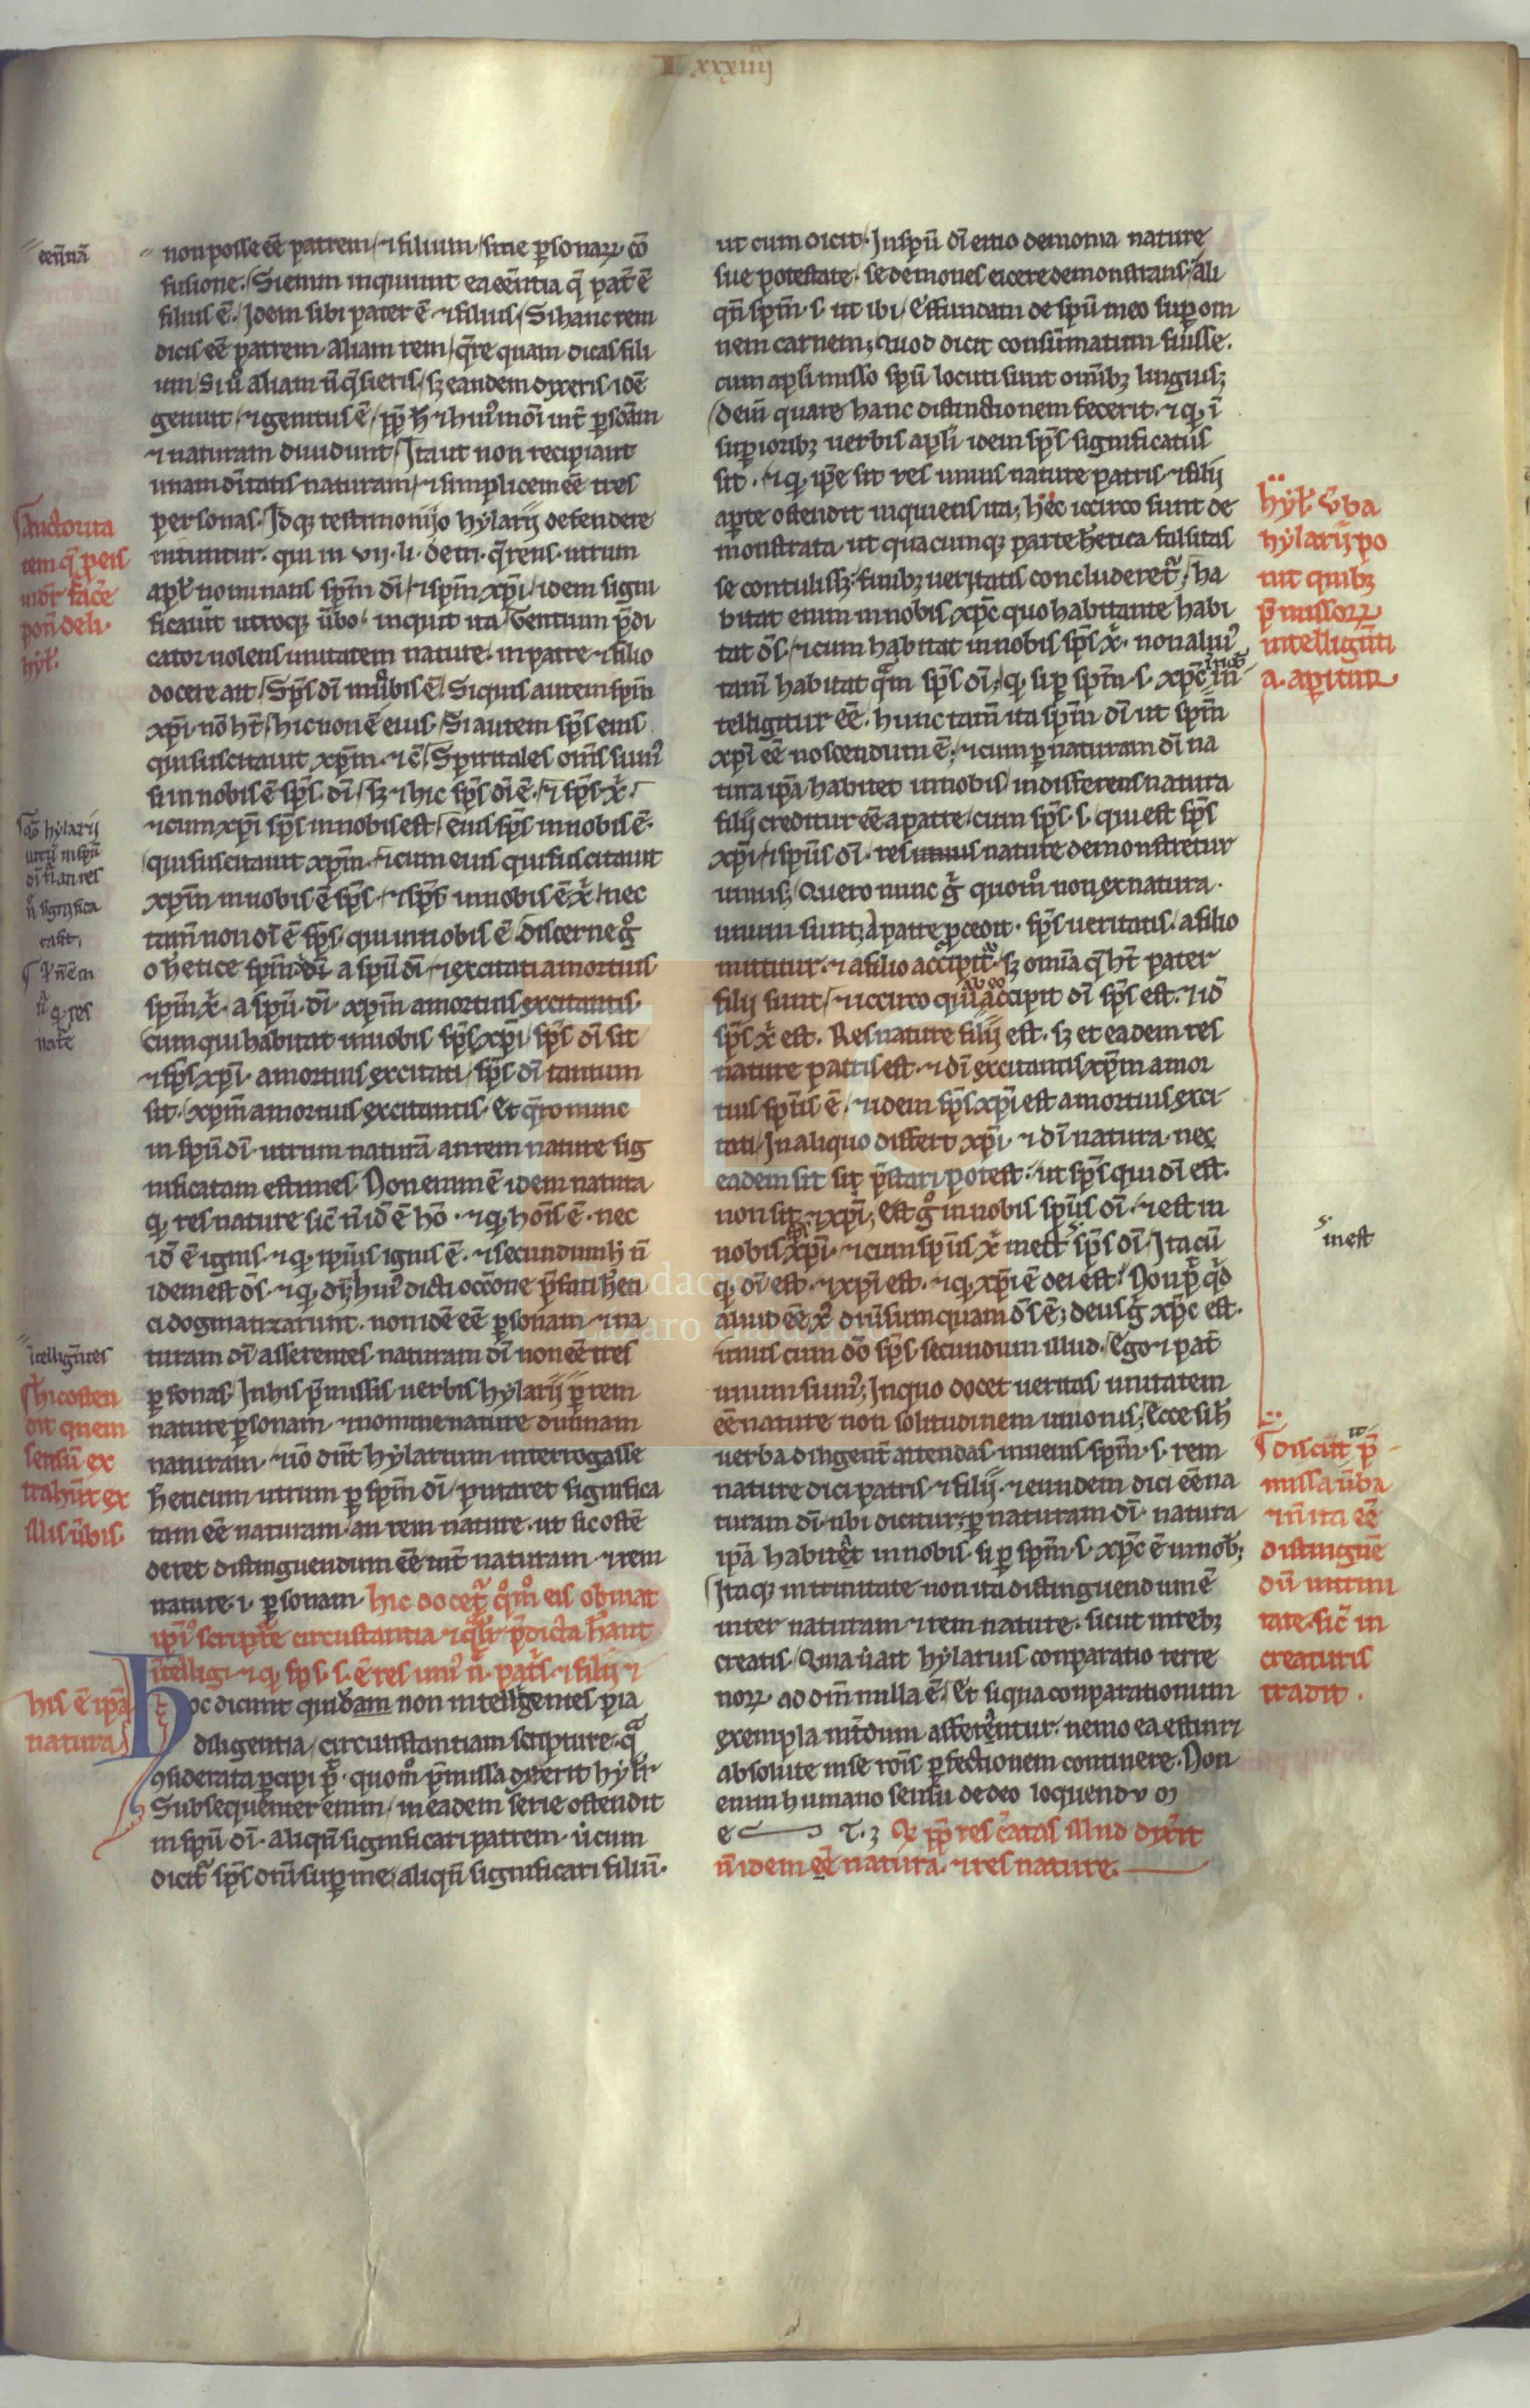 Lxxxiiij
eēntiā
non posse eē patrem / ⁊ filium / sine ꝑsonaꝝ cō
fusione. / Si enim inquiunt ea eēntia q̄ pat̄ ē
filius ē. / Idem sibi pater ē ⁊ filius / Si hanc rem
dicis eē patrem aliam rem / q̄re quam dicas fili
um / Si ū aliam n̄ q̄sieris / sꝫ eandem dixeris idē
genuit / ⁊ genitus ē / ꝓp̄ h̄ ⁊ hui9 mōi int̄ ꝑsonam
⁊ naturam diuidunt / Ita ut non recipiant
unam diūitatis naturam / ⁊ simplicem eē tres
personas. Idqꝫ testimonijo hylarij defendere
nituntur. qui in vij. li. de tri. q̄rens. utrum
apl's nominans spm̄ dī / ⁊ spm̄ xp̄i / idem signi
ficauit utroqꝫ ūbo / inquit ita / Gentium p̄di
cator uolens unitatem nature. in patre ⁊ filio
docere ait / Sp̄s dī in uobis ē / Si quis autem spm̄
xp̄i nō ht̄ / hic non ē eius. Si autem sp̄s eius
qui suscitauit xp̄m. ⁊ c̄ / Spiritales oms̄ sum9
si in nobis ē sp̄s dī / sꝫ ⁊ hic sp̄s dī ē. ⁊ sp̄s x̄.
⁊ cum xp̄i sp̄s in nobis est / eius sp̄s in nobis ē.
qui suscitauit xp̄m. ⁊ cum eius qui suscitauit
xp̄m in nobis ē sp̄s. ⁊ sp̄s in nobis ē x̄ / nec
tam̄ non dī ē sp̄s. qui in nobis ē / Discerne gͦ
o h̄etice spm̄ dī a spū dī / ⁊ excitati a mortuis
spm̄ x̄. a spū. dī. xp̄m a mortuis excitantis.
Cum qui habitat in uobis sp̄s xp̄i / sp̄s dī sit
⁊ sp̄s xp̄i. a mortuis excitati / sp̄s dī tantum
sit. / xp̄m a mortuis excitantis. Et q̄ro nunc
in spū dī. utrum naturā an rem nature sig
nificatam estimes. Non enim ē idem natura
qꝫ res nature sic̄ n̄ idē ē hō. ⁊ qꝫ hoīs ē. nec
idē ē ignis. ⁊ qꝫ ipius ignis ē. ⁊ secundum h̄ n̄
idem est ds̄. ⁊ qꝫ dī / hui9 dicti occōne p̄fati h̄eti
ci dogmatizarunt. non idē eē ꝑsonam ⁊ na
turam dī asserentes. naturam dī non eē tres
ꝑsonas / In his p̄missis uerbis hylarij ꝑ rem
nature ꝑsonam ⁊ nomine nature diuinam
naturam. ⁊ iō dn̄t hylarium interrogasse
h̄eticum utrum ꝑ spm̄ dī / putaret significa
tam eē naturam. an rem nature. ut sic ostē
deret distinguendum eē int̄ naturam ⁊ rem
nature. i. ꝑsonam. hic docet᷑ qͦmͦ eis obuiat
ip̄i9 scripture circustantia ⁊ qlr̄ p̄dicta h̄ant
intelligi ⁊ qꝫ sp̄s s. ē res uni9 n̄. patris ⁊ filij ⁊
his ē ipā
natura
Hoc dicunt quidam non intelligentes pia
diligentia / circumstantiam scripture. qᷓ
ꝯsiderata ꝑcipi p̄. quomͦ p̄missa dixerit hylr̄
Subsequenter enim / in eadem serie ostendit
in spū dī. aliqn̄ significari patrem. ut cum
dicit᷑ sp̄s dnī suꝑ me / aliqn̄ significari filiū.
S auctorita
tem q̄ p̄eis
uidr̄ face
pon̄ de li.
hyl'.
intelligētes
S hic osten
dit quem
sensū ex
trahūt ex
illis ūbis.
ut cum dicit. In spū dī eicio demonia nature
sue potestate. se demones eicere demonstrans / ali
qn̄ spm̄. s. ut ibi / Effundam de spū meo suꝑ om
nem carnem / Quod dicit consūmatum fuisse.
cum apl'i misso spū locuti sunt omībꝫ linguis;
Dein̄ quare hanc distinctionem fecerit. ⁊ qꝫ ī
suꝑioribꝫ uerbis apl'i idem sp̄s significatus
sit. ⁊ qꝫ ipe sit res unius nature patris ⁊ filij
aperte ostendit inquiens ita; Hec iccirco sunt de
monstrata ut quacumqꝫ parte h̄etica falsitas
se contulissꝫ / finibꝫ ueritatis concluderet᷑ / ha
bitat enim in nobis xp̄c quo habitante habi
tat ds̄. / ⁊ cum habitat in nobis sp̄s x̄. non alius
tam̄ habitat qᷓm sp̄s dī / qꝫ si ꝑ spm̄. s. xp̄c in nob' in
telligitur eē. hunc tam̄ ita spm̄ dī ut spm̄
xp̄i eē noscendum ē. / ⁊ cum ꝑ naturam dī na
tura ipā habitet in nobis / indifferens natura
filij creditur eē a patre / cum sp̄s. s. qui est sp̄s
xp̄i / ⁊ spūs dī. res unius nature demonstretur
unius; Quero nunc gͦ quomͦ non ex natura.
unum sunt; a patre ꝓcedit. sp̄s ueritatis. a filio
mittitur. ⁊ a filio accipit. sꝫ omīa q̄ ht̄ pater
filij sunt / ⁊ iccirco qui ab eo accipit dī sp̄s est. ⁊ iō
sp̄s x̄ est. Res nature filij est. sꝫ et eadem res
nature patris est. ⁊ dī excitantis xp̄m a mor
tuis spūs ē. ⁊ idem sp̄s xp̄i est a mortuis exci
tati / In aliquo differt xp̄i ⁊ dī natura. nec
eadem sit si p̄stari potest. ut sp̄s qui dī est.
non sit ⁊ xp̄i; Est gͦ in nobis spūs dī. ⁊ est in
nobis sp̄s xp̄i. ⁊ cum spūs x̄ inest sp̄s dī / Ita cū
qꝫ dī est. ⁊ xp̄i est. ⁊ qꝫ xp̄i ē dei est / Non p̄t qͥd
aliud eē x̄ diūsum quam ds̄ ē; deus gͦ xp̄c est.
unus cum dō sp̄s. secundum illud. / Ego ⁊ pat̄
unum sum9; In quo docet ueritas unitatem
eē nature non solitudinem unionis; Ecce si h̄
uerba diligent̄ attendas. inuenis spm̄. s. rem
nature dici patris ⁊ filij. ⁊ eundem dici eē na
turam dī. ubi dicitur; ꝑ naturam dī. natura
ipā habitet in nobis. si ꝑ spm̄. s. xp̄c ē in nob';
Itaqꝫ in trinitate non ita distinguendum ē
inter naturam ⁊ rem nature. sicut in rebꝫ
creatis / Quia ū ait hylarius conparatio terre
noꝝ ad dm̄ nulla ē. / Et si qua conparationum
exempla int̄dum afferentur. nemo ea estimet
absolute in se ronīs ꝑfectionem continere. Non
enim humano sensu de deo loquendum
e Qꝫ ꝓp̄ res creatas illud dixit
n̄ idem eē natura. ⁊ res nature.
hyl'. ūba
hylarij po
nit quibꝫ
p̄missoꝝ
intelligēti
a. aperitur
inest
S Discut̄ p̄
missa ūba
⁊ n̄ ita eē
distinguē
dū in trini
tate. sic̄ in
creaturis
tradit.